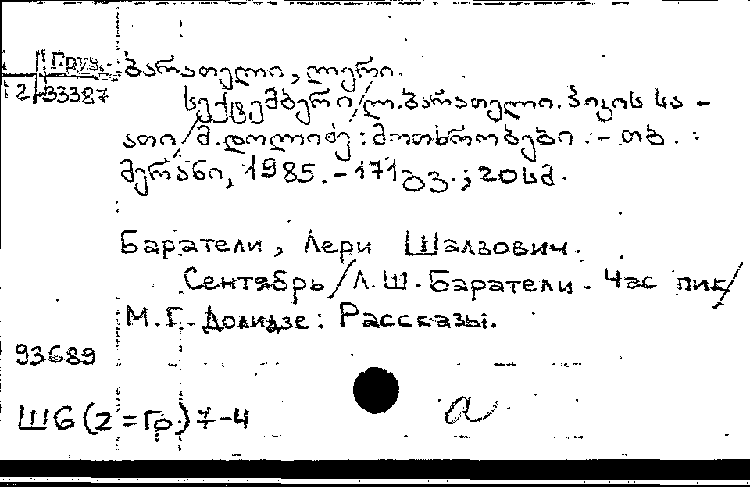 Груз.
2/33387
ბარათელი, ლერი.
სექტემბერი/ლ.ბარათელი. პიკის სა-
ათი/მ.დოლიძე: მოთხრობები. - თბ. :
მერანი, 1985. - 171 გვ.; 20 სმ.
Баратели, Лери Шалвович.
Сентябрь/Л.Ш.Баратели. Час пик/
М.Г.Долидзе: Рассказы.
93689
Ш6(2=Гр)7-4
а